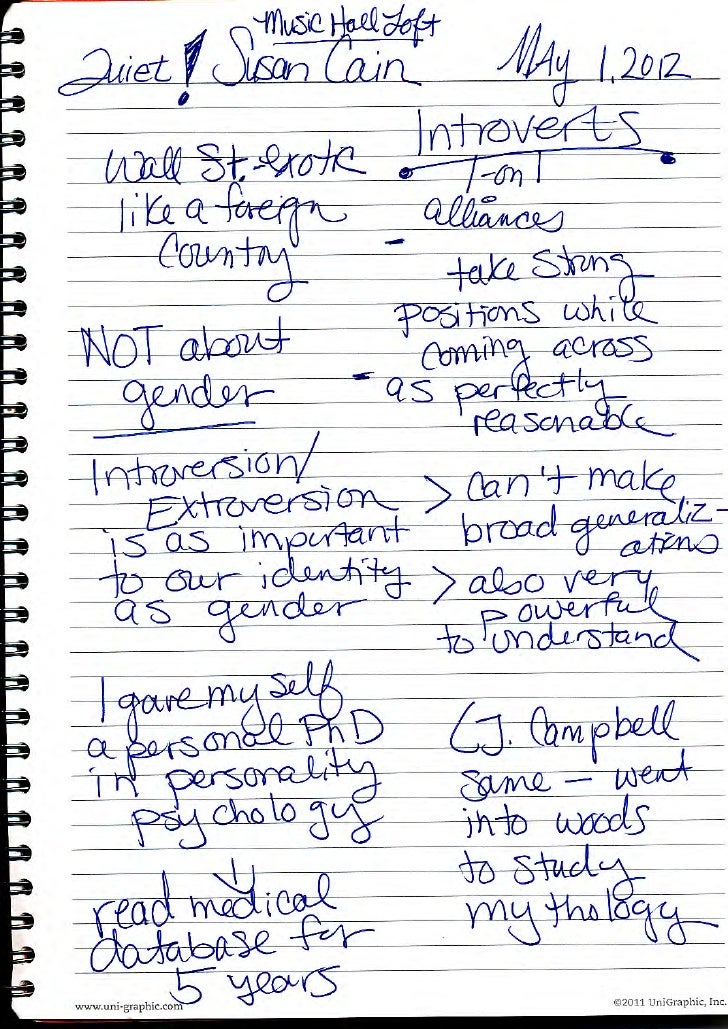 Music Hall Loft
Quiet! Susan Cain
May 1, 2012
Wall St. - exotic
like a foreign
Country
Introverts
1-on 1
alliances
- take Strong
positions while
coming across
- as perfectly
reasonable
NOT about
gender
Introversion/
Extroversion
is as important
to our identity
as gender
> can't make
broad generaliz-
ations
> also very
powerful
to understand
I gave my self
a personal PhD
in personality
psychology
read medical
database for
5 years
(J. Campbell
same - went
into woods
to study
mythology
www.uni-graphic.com
©2011 UniGraphic, Inc.